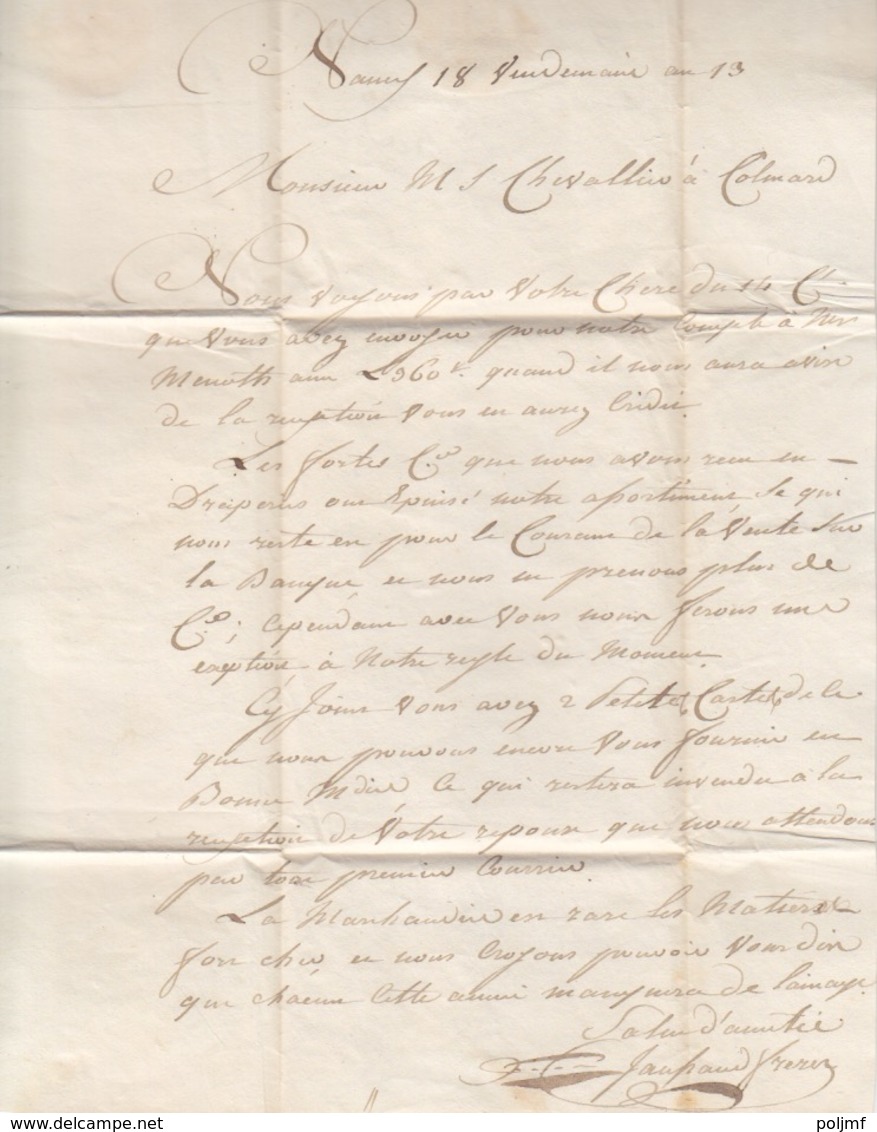 Nancy 18 Vendemaire an 13
Monsieur M S Chevallier à Colmard
Nous voyons par Votre Chere du 14 Ct
que Vous avez envoyé pour notre Compte à Mrs
aux L 960 quand il nous aura avisé
de la reception Vous en aurez Crédit.
Les fortes Cons que nous avons reçu en
Draperies ont Epuisé notre assortiment Ce qui
nous reste est pour le Courant de la Vente Sur
la Banque et nous ne prenons plus de
Con; cependant avec Vous nous ferons une
exeption à Notre regle du Moment
Cy Joint Vous avez 2 Petites Cartes de ce
que nous pouvons encore Vous fournir en
Bonne Mdise Ce qui restera invendu à la
reception de Votre reponse que nous attendons
par tout premier Courrier
La Marchandise est rare les Matieres
fort cher et nous Croyons pouvoir Vous dire
que chacun Cette année manquera de lainage.
Salut d'amitié
freres
www.delcampe.net
poljmf